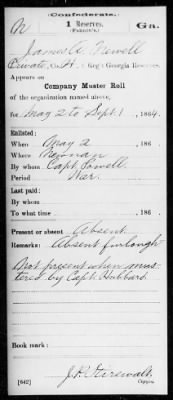 Confederate.
N 1 Reserves, Ga.
(Fannin's.)
James A. Newell
Private, Co. A, 1 Reg't Georgia Reserves.
Appears on
Company Muster Roll
of the organization named above,
for May 2 to Sept 1, 1864.
Enlisted:
When May 2, 186 .
Where Newnan
By whom Capt. Powell
Period War.
Last paid:
By whom
To what time , 186 .
Present or absent Absent.
Remarks: Absent furlough
Not present when mus-
tered by Capt. Hubbard.
Book mark:
J.R. Stirewalt
(642) Copyist.